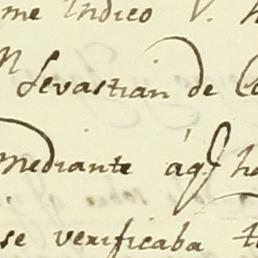 me Indico V.
Sevastian de
mediante áq̃
se verificaba